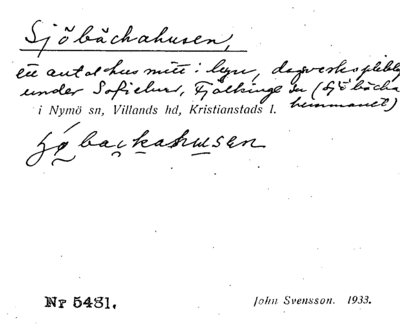 Sjöbäckahusen,
ett antal hus mitt i byn, dagsverkspliktig
under Sofielund, Fjälkinge sn (Sjöbäcka
hemmanet)
i Nymö sn, Villands hd, Kristianstads l.
Nr 5431.
John Svensson. 1933.